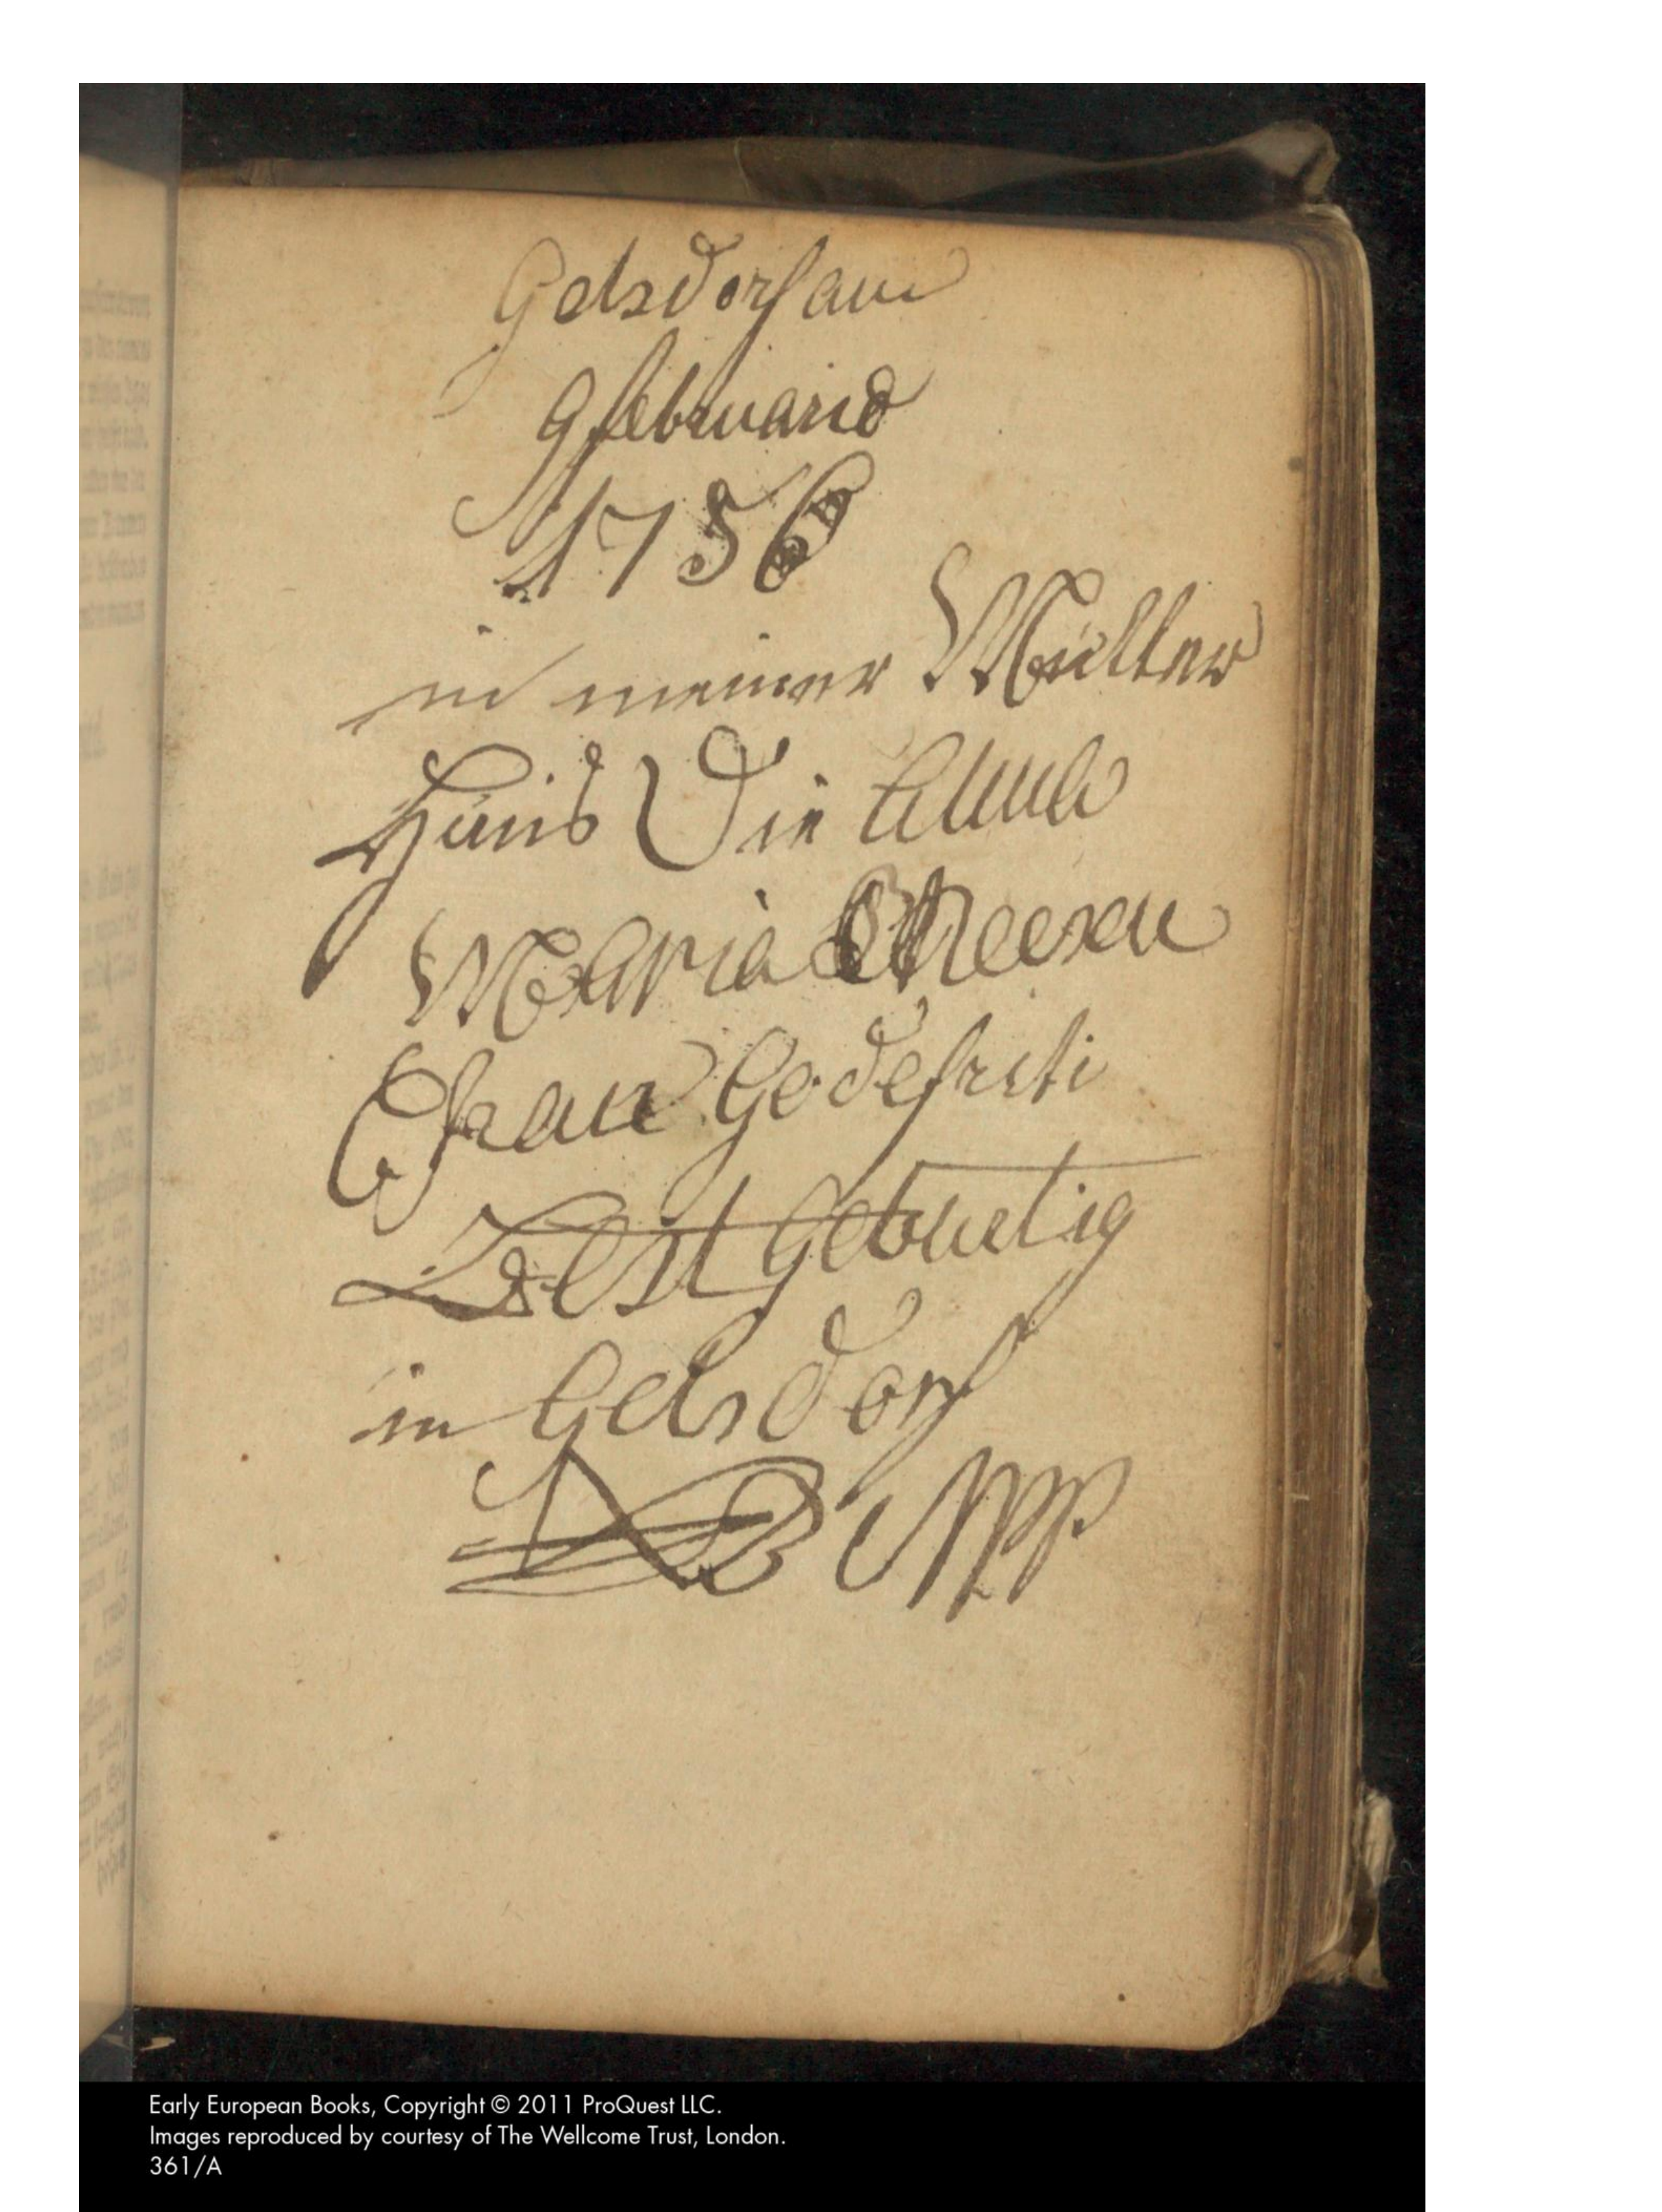 Gelsdorf am
9 februarid
1756
in meiner Mutter
Haus Die Anna
Maria
Godefriti
ist Geburtig
in Gelsdorf
NB Mpp
Early European Books, Copyright © 2011 ProQuest LLC.
Images reproduced by courtesy of The Wellcome Trust, London.
361/A